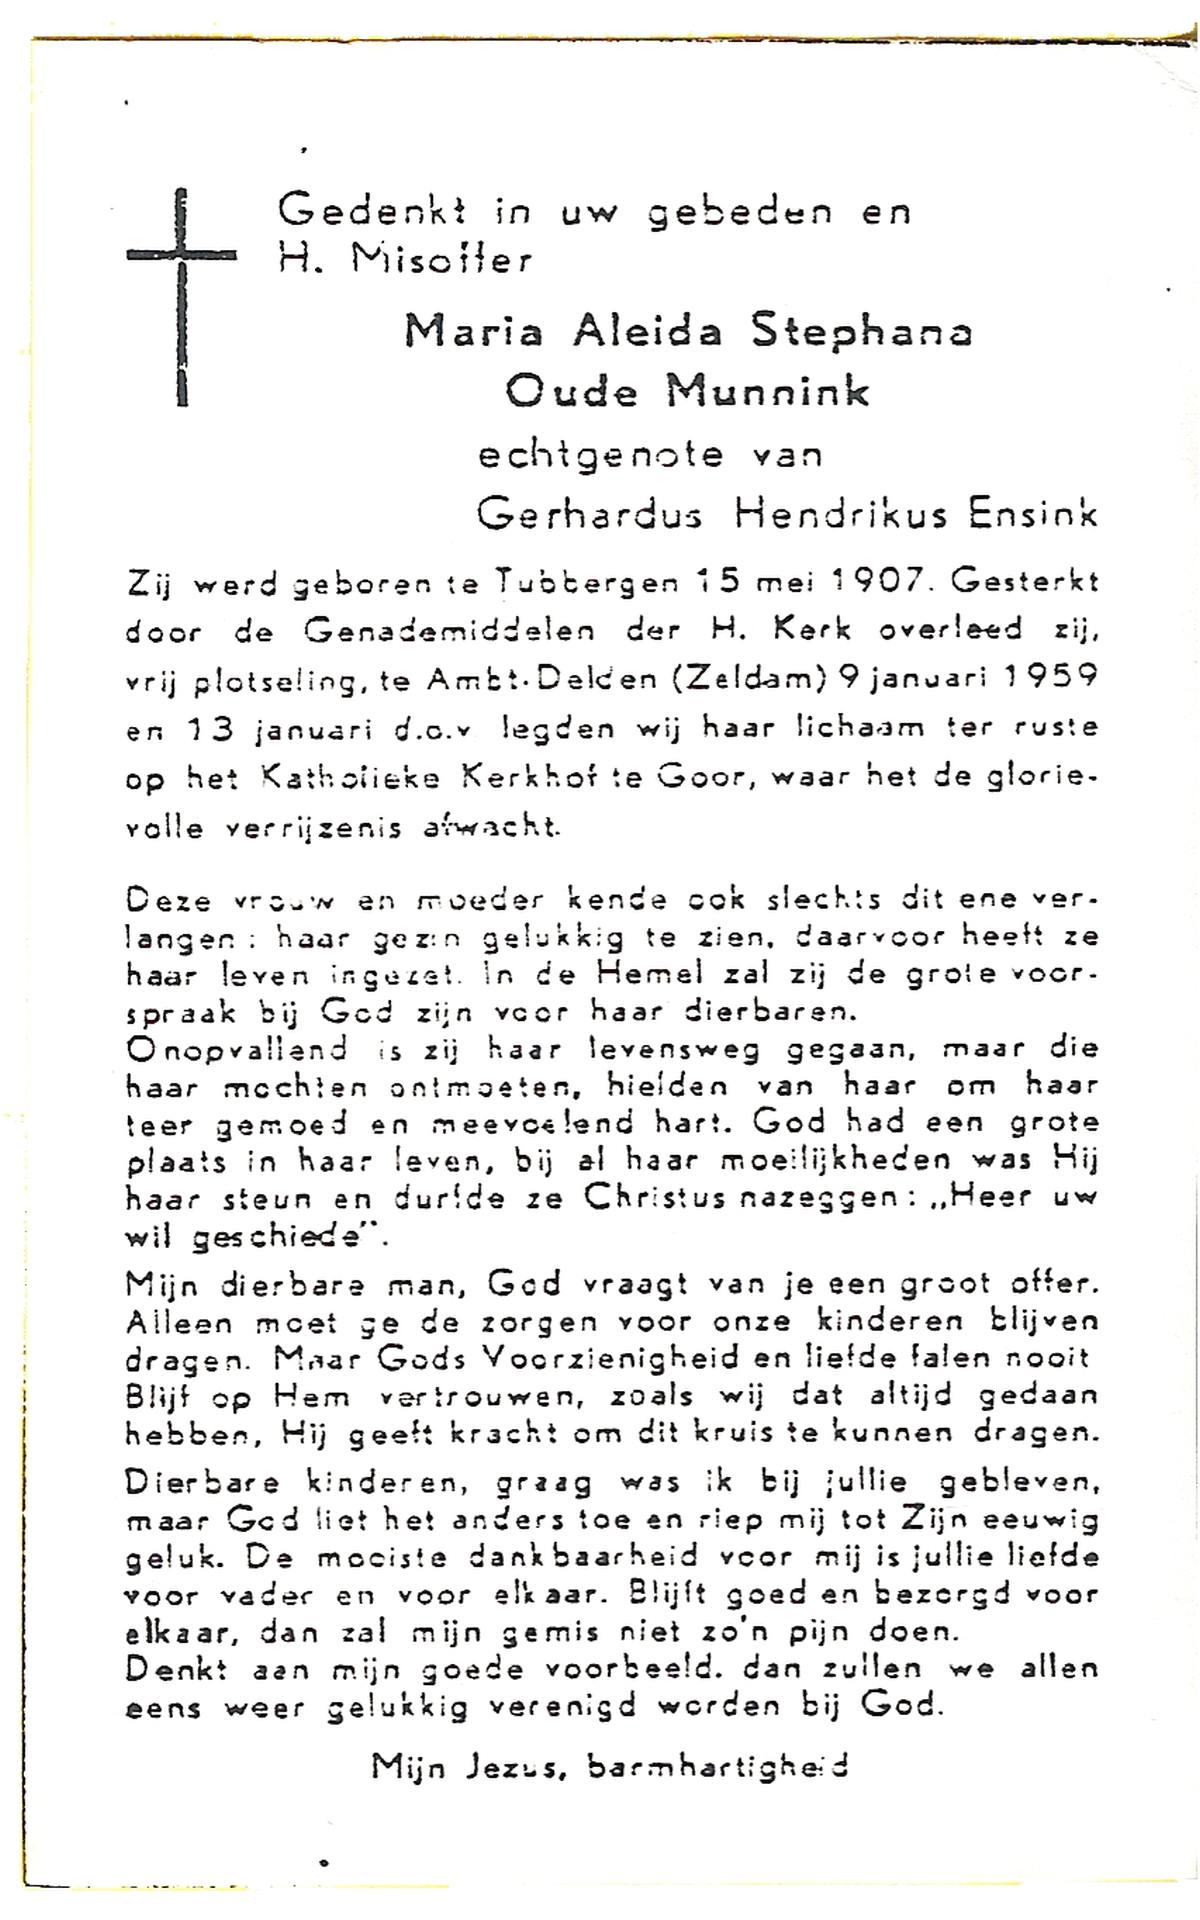 Gedenkt in uw gebeden en
H. Misoffer
Maria Aleida Stephana
Oude Munnink
echtgenote van
Gerhardus Hendrikus Ensink
Zij werd geboren te Tubbergen 15 mei 1907. Gesterkt
door de Genademiddelen der H. Kerk overleed zij,
vrij plotseling, te Ambt-Delden (Zeldam) 9 januari 1959
en 13 januari d.o.v. legden wij haar lichaam ter ruste
op het Katholieke Kerkhof te Goor, waar het de glorie-
volle verrijzenis afwacht.
Deze vrouw en moeder kende ook slechts dit ene ver-
langen: haar gezin gelukkig te zien, daarvoor heeft ze
haar leven ingezet. In de Hemel zal zij de grote voor-
spraak bij God zijn voor haar dierbaren.
Onopvallend is zij haar levensweg gegaan, maar die
haar mochten ontmoeten, hielden van haar om haar
teer gemoed en meevoelend hart. God had een grote
plaats in haar leven, bij al haar moeilijkheden was Hij
haar steun en durfde ze Christus nazeggen: „Heer uw
wil geschiede".
Mijn dierbare man, God vraagt van je een groot offer.
Alleen moet ge de zorgen voor onze kinderen blijven
dragen. Maar Gods Voorzienigheid en liefde falen nooit
Blijf op Hem vertrouwen, zoals wij dat altijd gedaan
hebben, Hij geeft kracht om dit kruis te kunnen dragen.
Dierbare kinderen, graag was ik bij jullie gebleven,
maar God liet het anders toe en riep mij tot Zijn eeuwig
geluk. De mooiste dankbaarheid voor mij is jullie liefde
voor vader en voor elkaar. Blijft goed en bezorgd voor
elkaar, dan zal mijn gemis niet zo'n pijn doen.
Denkt aan mijn goede voorbeeld. dan zullen we allen
eens weer gelukkig verenigd worden bij God.
Mijn Jezus, barmhartigheid